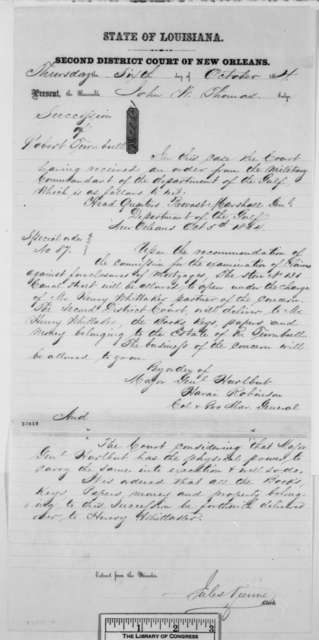 STATE OF LOUISIANA.
SECOND DISTRICT COURT OF NEW ORLEANS.
Thursday the Sixth day of October 1864
Present, the Honorable John W. Thomas Judge
Succession
of
Robert Turnbull
In this case the Court
having received an order from the Military
Commandant of the department of the Gulf
which is as follows to wit:
Head Quarters Provost Marshall Genl
Department of the Gulf
New Orleans Oct 5th 1864
Special order
No 87.
Upon the recommendation of
the commission for the examination of Claims
against foreclosures of Mortgages, The Store No
Canal Street will be allowed to open under the charge
of Mr Henry Whittaker partner of the concern.
The Second District Court, will deliver to Mr
Henry Whittaker, the Books, Keys, papers, and
money belonging to the Estate of R. Turnbull.
The business of the concern will
be allowed to go on
By order of
Major Genl Hurlbut
Harai Robinson
Col & Pro Mar General
And
The Court considering that Major
Genl Hurlbut has the physical power to
carry the same into execution & will so do.
It is ordered that all the Books,
Keys, Papers money and property belong-
ing to this Succession be forthwith delivered
over, to Henry Whittaker.
Extract from the Minutes.
Clerk
1 2 3
THE LIBRARY OF CONGRESS